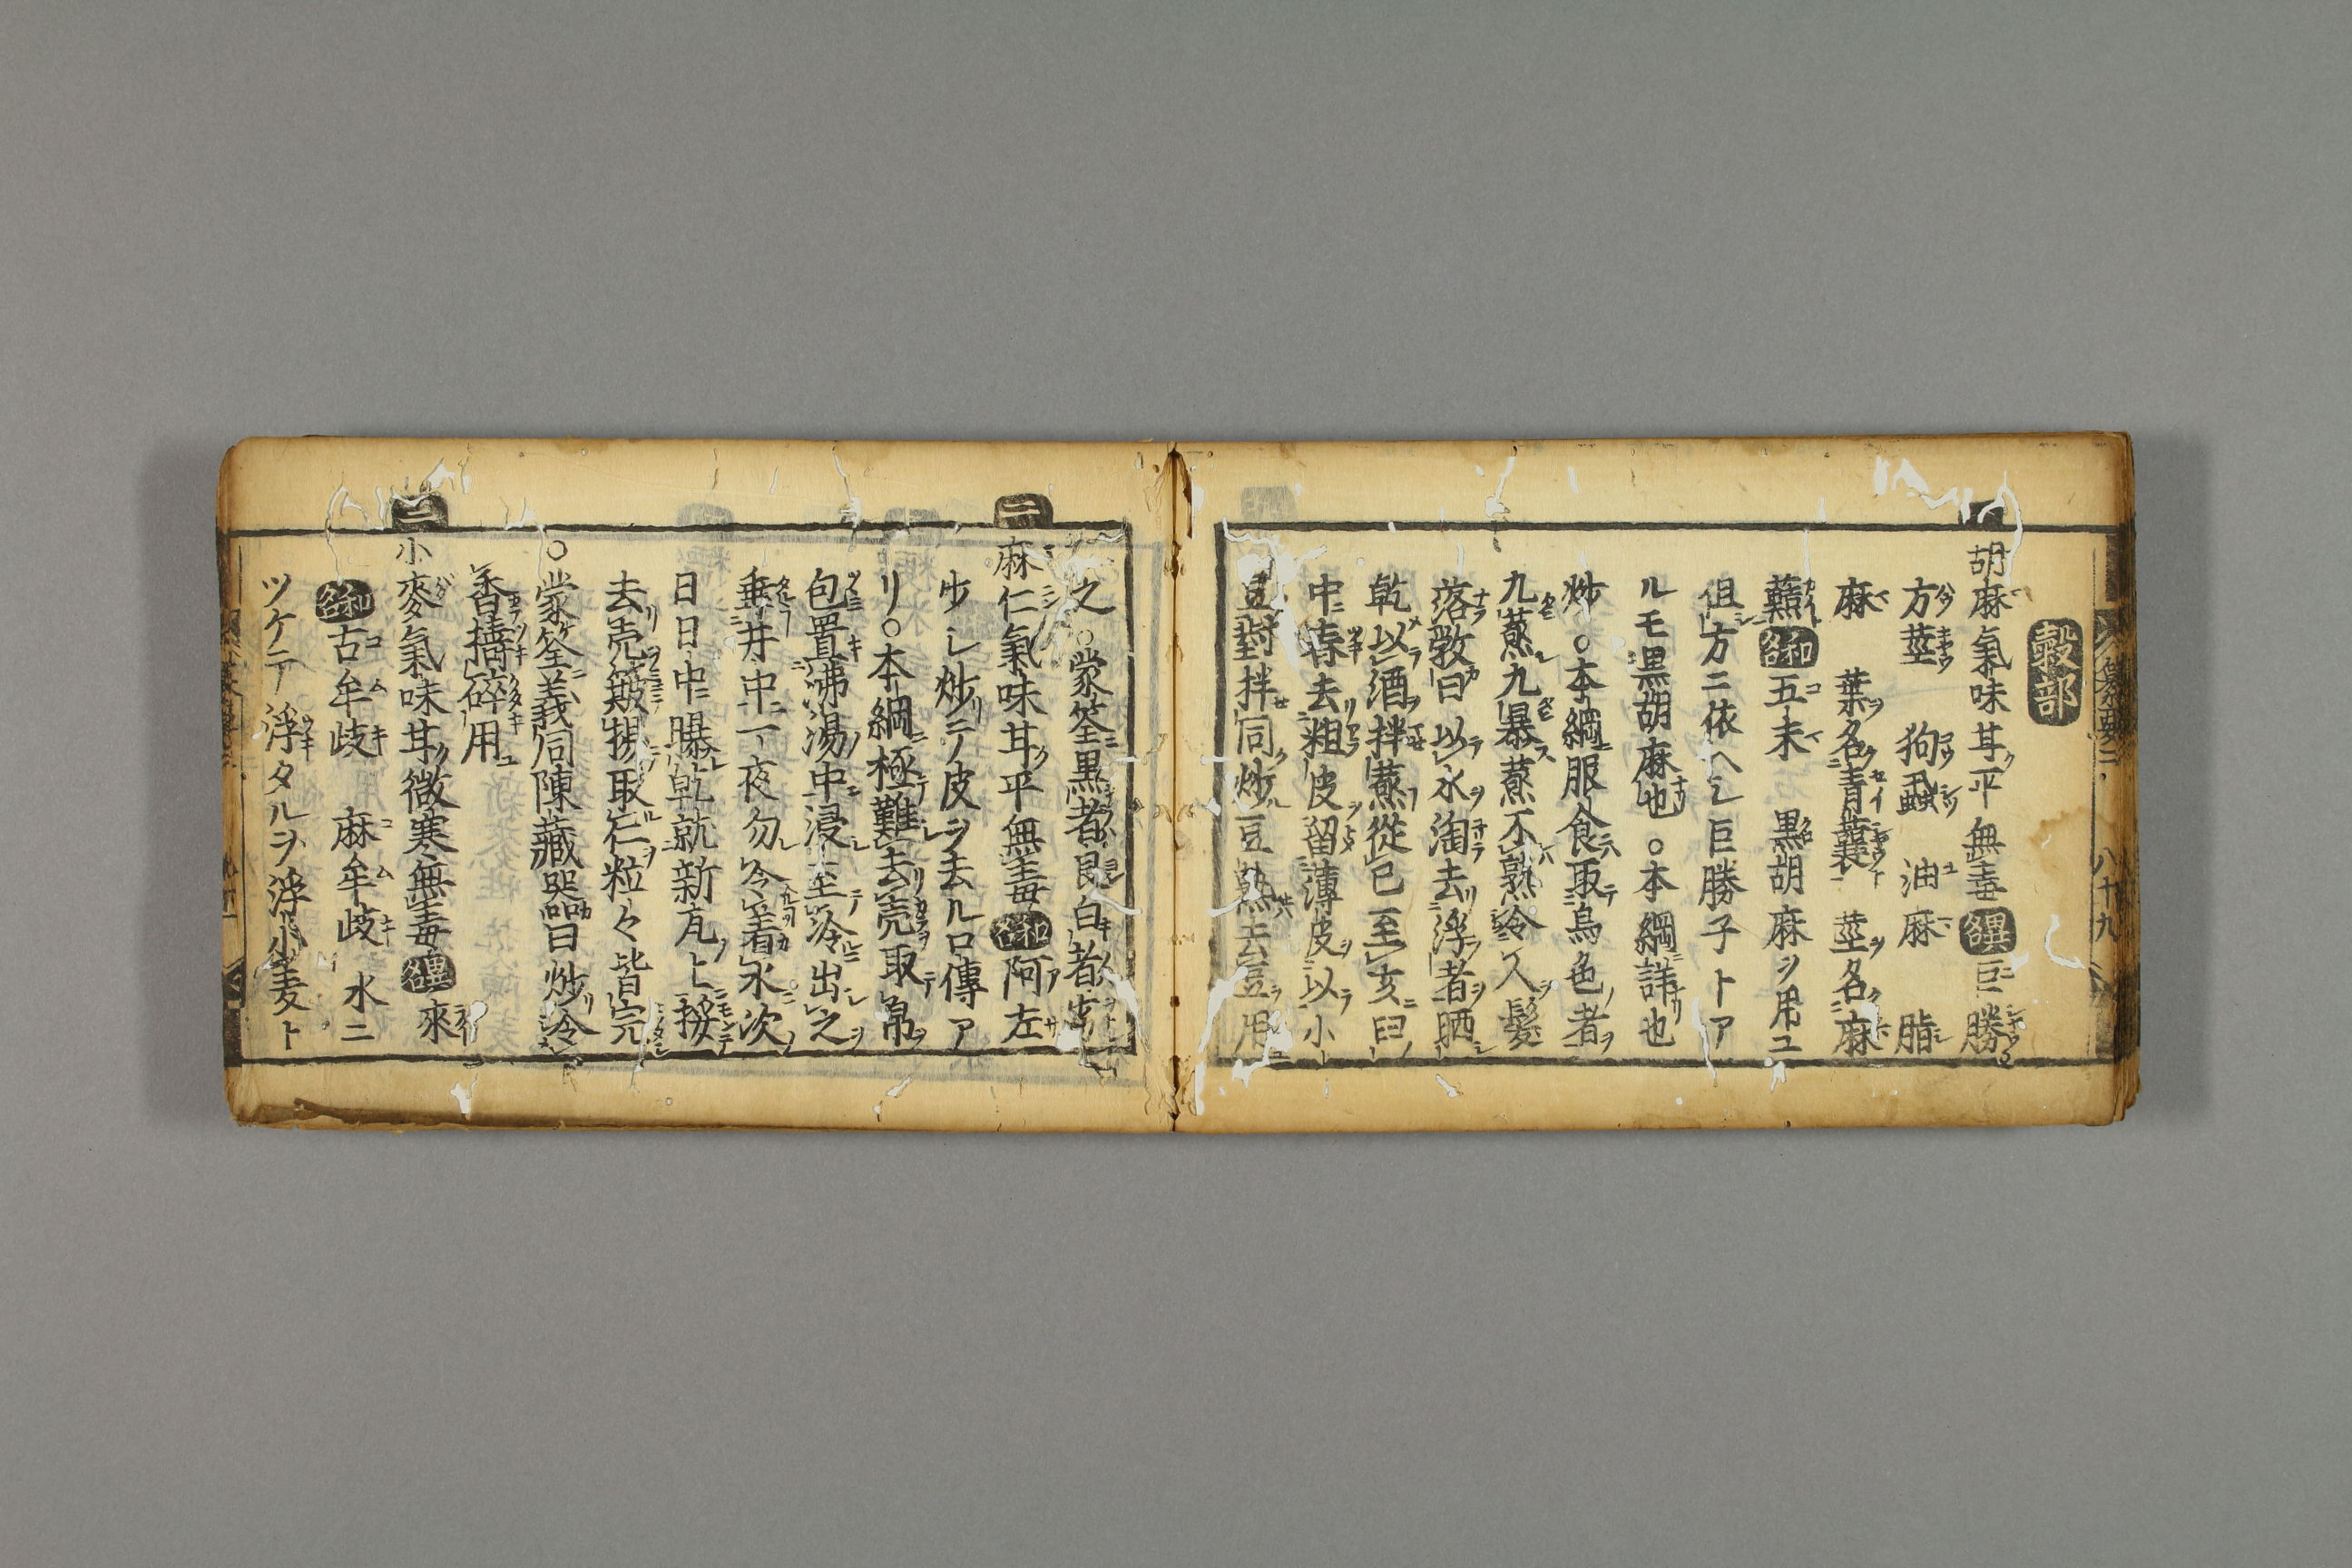 纂要二 八十九
穀部
胡麻氣味甘平無毒 異名 巨勝
方莖 狗蝨 油麻 脂
麻 葉名青蘘 莖名麻
𧂇 和名 五末 黒胡麻ヲ用ユ
但方ニ依ヘシ巨勝子トア
ルモ黒胡麻也○本綱詳也
炒○本綱服食取烏色者
九蒸九暴蒸不熟令人髪
落斅曰以水淘去浮者晒
乾以酒拌蒸從巳至亥曰
中舂去粗皮留薄皮以小
豆對拌同炒豆熟去豆用
之○蒙筌黒者良白者劣
麻仁氣味甘平無毒 和名 阿左
少シ炒テ皮ヲ去ル口傳ア
リ○本綱極難去売取帛
包置沸湯中浸至冷出之
垂井中一夜勿令着水次
日日中曝乾就新瓦上挼
去売簸揚取仁粒々皆完
○蒙筌義同陳藏器曰炒令
香擣碎用
小麥氣味甘微寒無毒 異名 來
和名 古牟歧 麻牟歧 水ニ
ツケテ浮タルヲ浮小麦ト